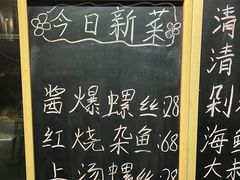 今日新菜
酱爆螺丝:28
红烧杂鱼:68
上汤螺丝:28
清
清
剁
海鲜
大